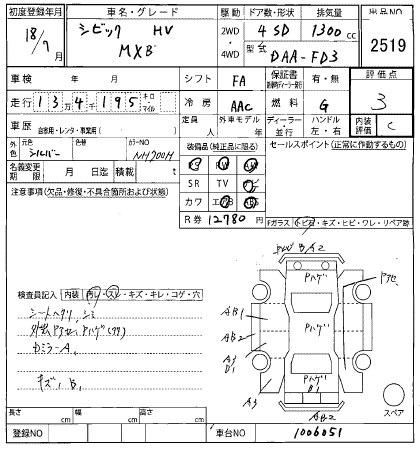 初度登録年月 車名・グレード 駆動 ドア数・形状 排気量 出品NO
18/7月 シビック HV 2WD・4WD 4 SD 1300cc 2519
MXB 2WD・4WD 型式 DAA-FD3
車検 年 月 シフト FA 保証書 有・無 評価点
走行 13万4千195 キロ・マイル 冷房 AAC 燃料 G 3
車歴 自家用・レンタ・事業用( ) 定員 人 外車モデル 年 ディーラー・並行 ハンドル 左・右 内装評価 C
外色 元色 シルバー 色替 カラーNO NH700H 装備品(純正品に限る) セールスポイント(正常に作動するもの)
名義変更期限 月 日迄 積載 t SR TV
注意事項(欠品・修復・不具合箇所および状態) カワ
R券 12780円 Fガラス・トビ石・キズ・ヒビ・ワレ・リペア跡
A2
Pハゲ
検査員記入 内装 汚レ・スレ・キズ・キレ・コゲ・穴
AB1
シートヘタリ、シミ
AB2
Dミラー A
A3
B1
キズ、B1
Pハゲ
B1
A3
AB2
スペア
長さ cm 幅 cm 高さ cm
登録NO 車台NO 1006051